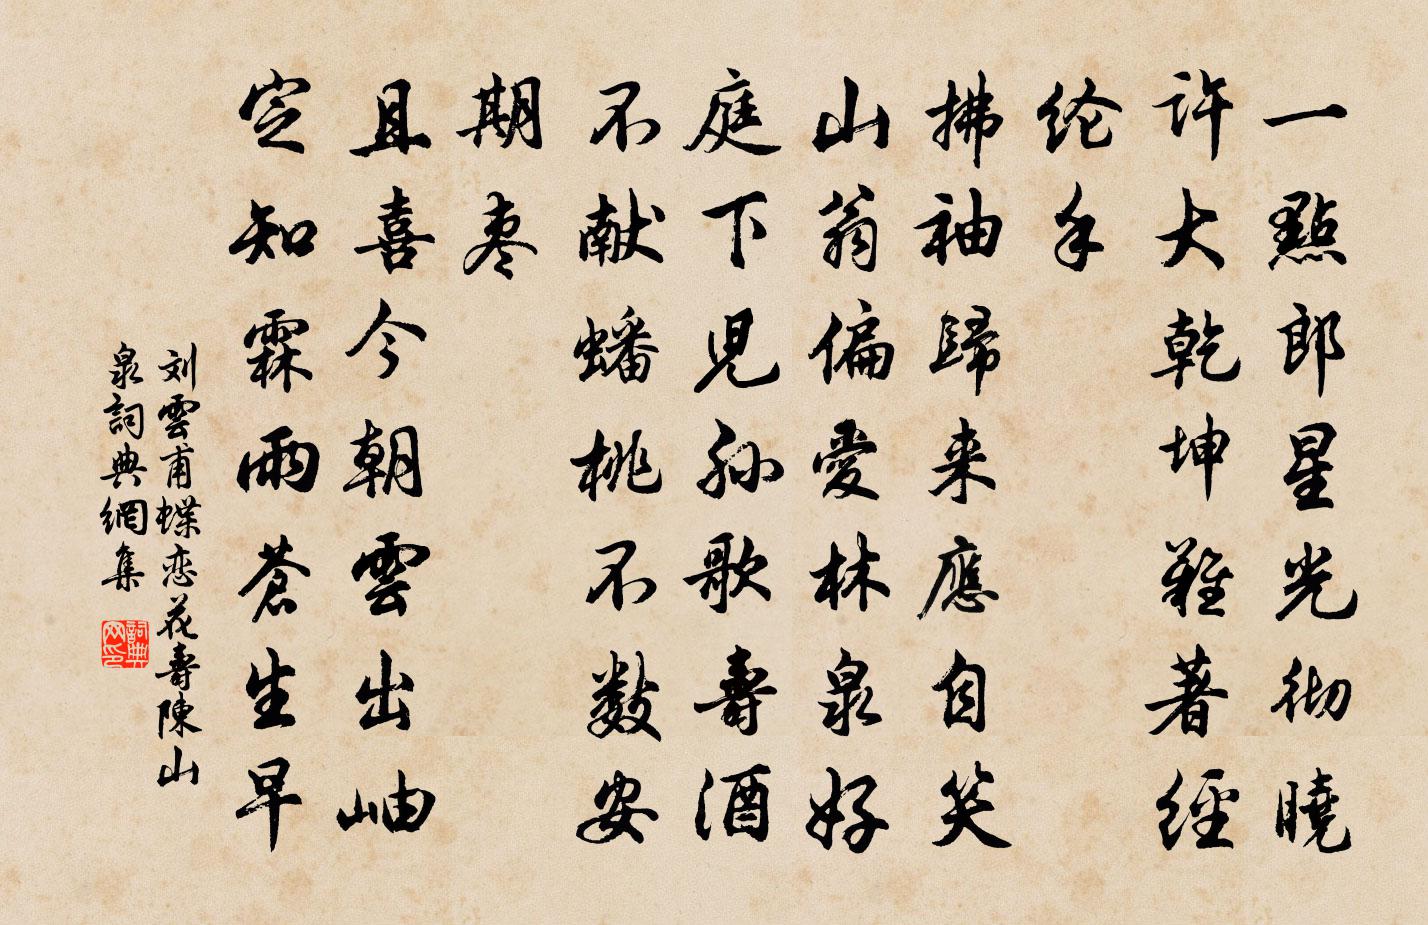 一點郎星光彻曉
许大乾坤難著經
纶手
拂袖歸来應自笑
山翁偏愛林泉好
庭下児孙歌壽酒
不献蟠桃不数安
期枣
且喜今朝雲出岫
定知霖雨蒼生早
刘雲甫蝶恋花壽陳山
泉詞典網集
詞典网印